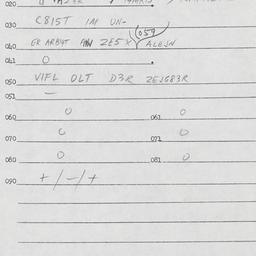 020
030 C815T IM UN-
(059)
040 GK ARBYT AN ZE5 X ALEJN
041 0
050 VIFL OLT D3R ZEJG83R
051 —
060 0 061 0
070 0 071 0
080 0 081 0
090 + / - / +